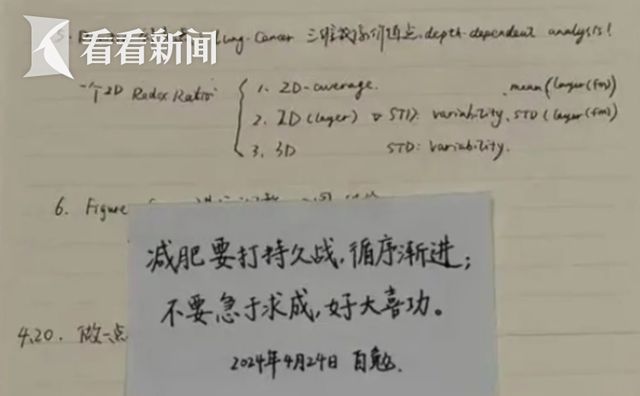 看看新闻
Lung-Cancer 三维 depth-dependent analysis!
一个 2D Redox Ratio
1. 2D-average. mean(layer(fm))
2. 2D(layer) STD: variability. STD(layer(fm))
3. 3D STD: variability.
6. Figure
减肥要打持久战，循序渐进；
不要急于求成，好大喜功。
4.20. 做一点
2024年4月24日 自勉.